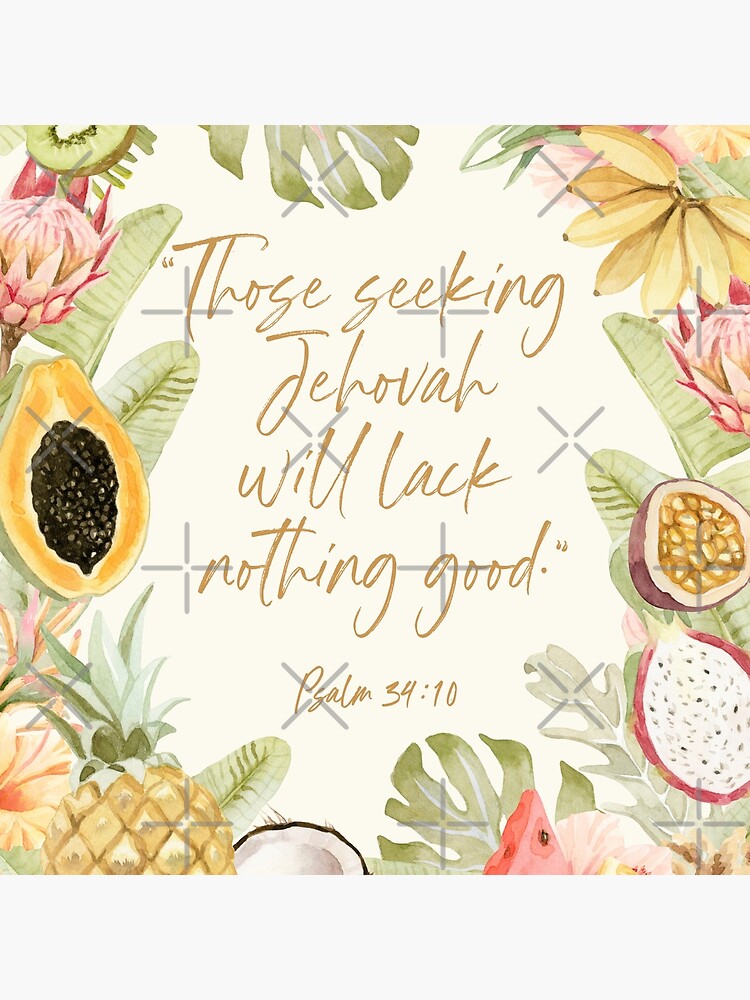 “Those seeking
Jehovah
will lack
nothing good.”
Psalm 34:10